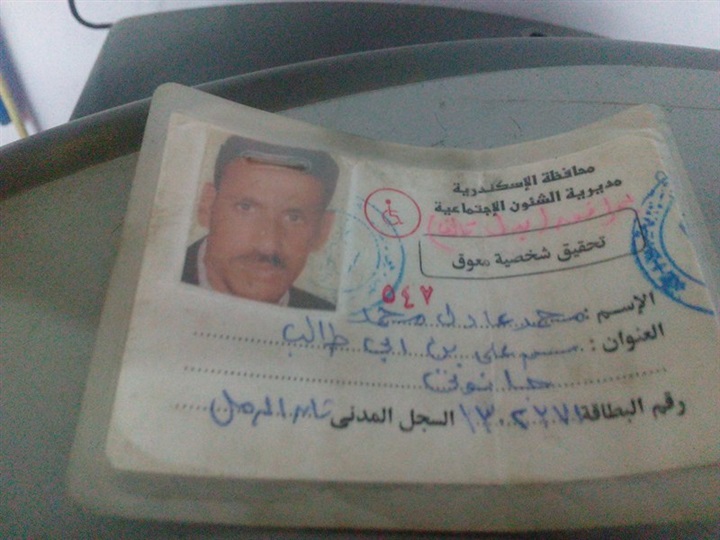 محافظة الإسكندرية
مديرية الشئون الإجتماعية
تحقيق شخصية معوق
٥٤٧
الإسم : محمد عادل محمد
العنوان : ش على بن ابى طالب
رقم البطاقة ١٣٠٢٢٧١ السجل المدنى الرمل